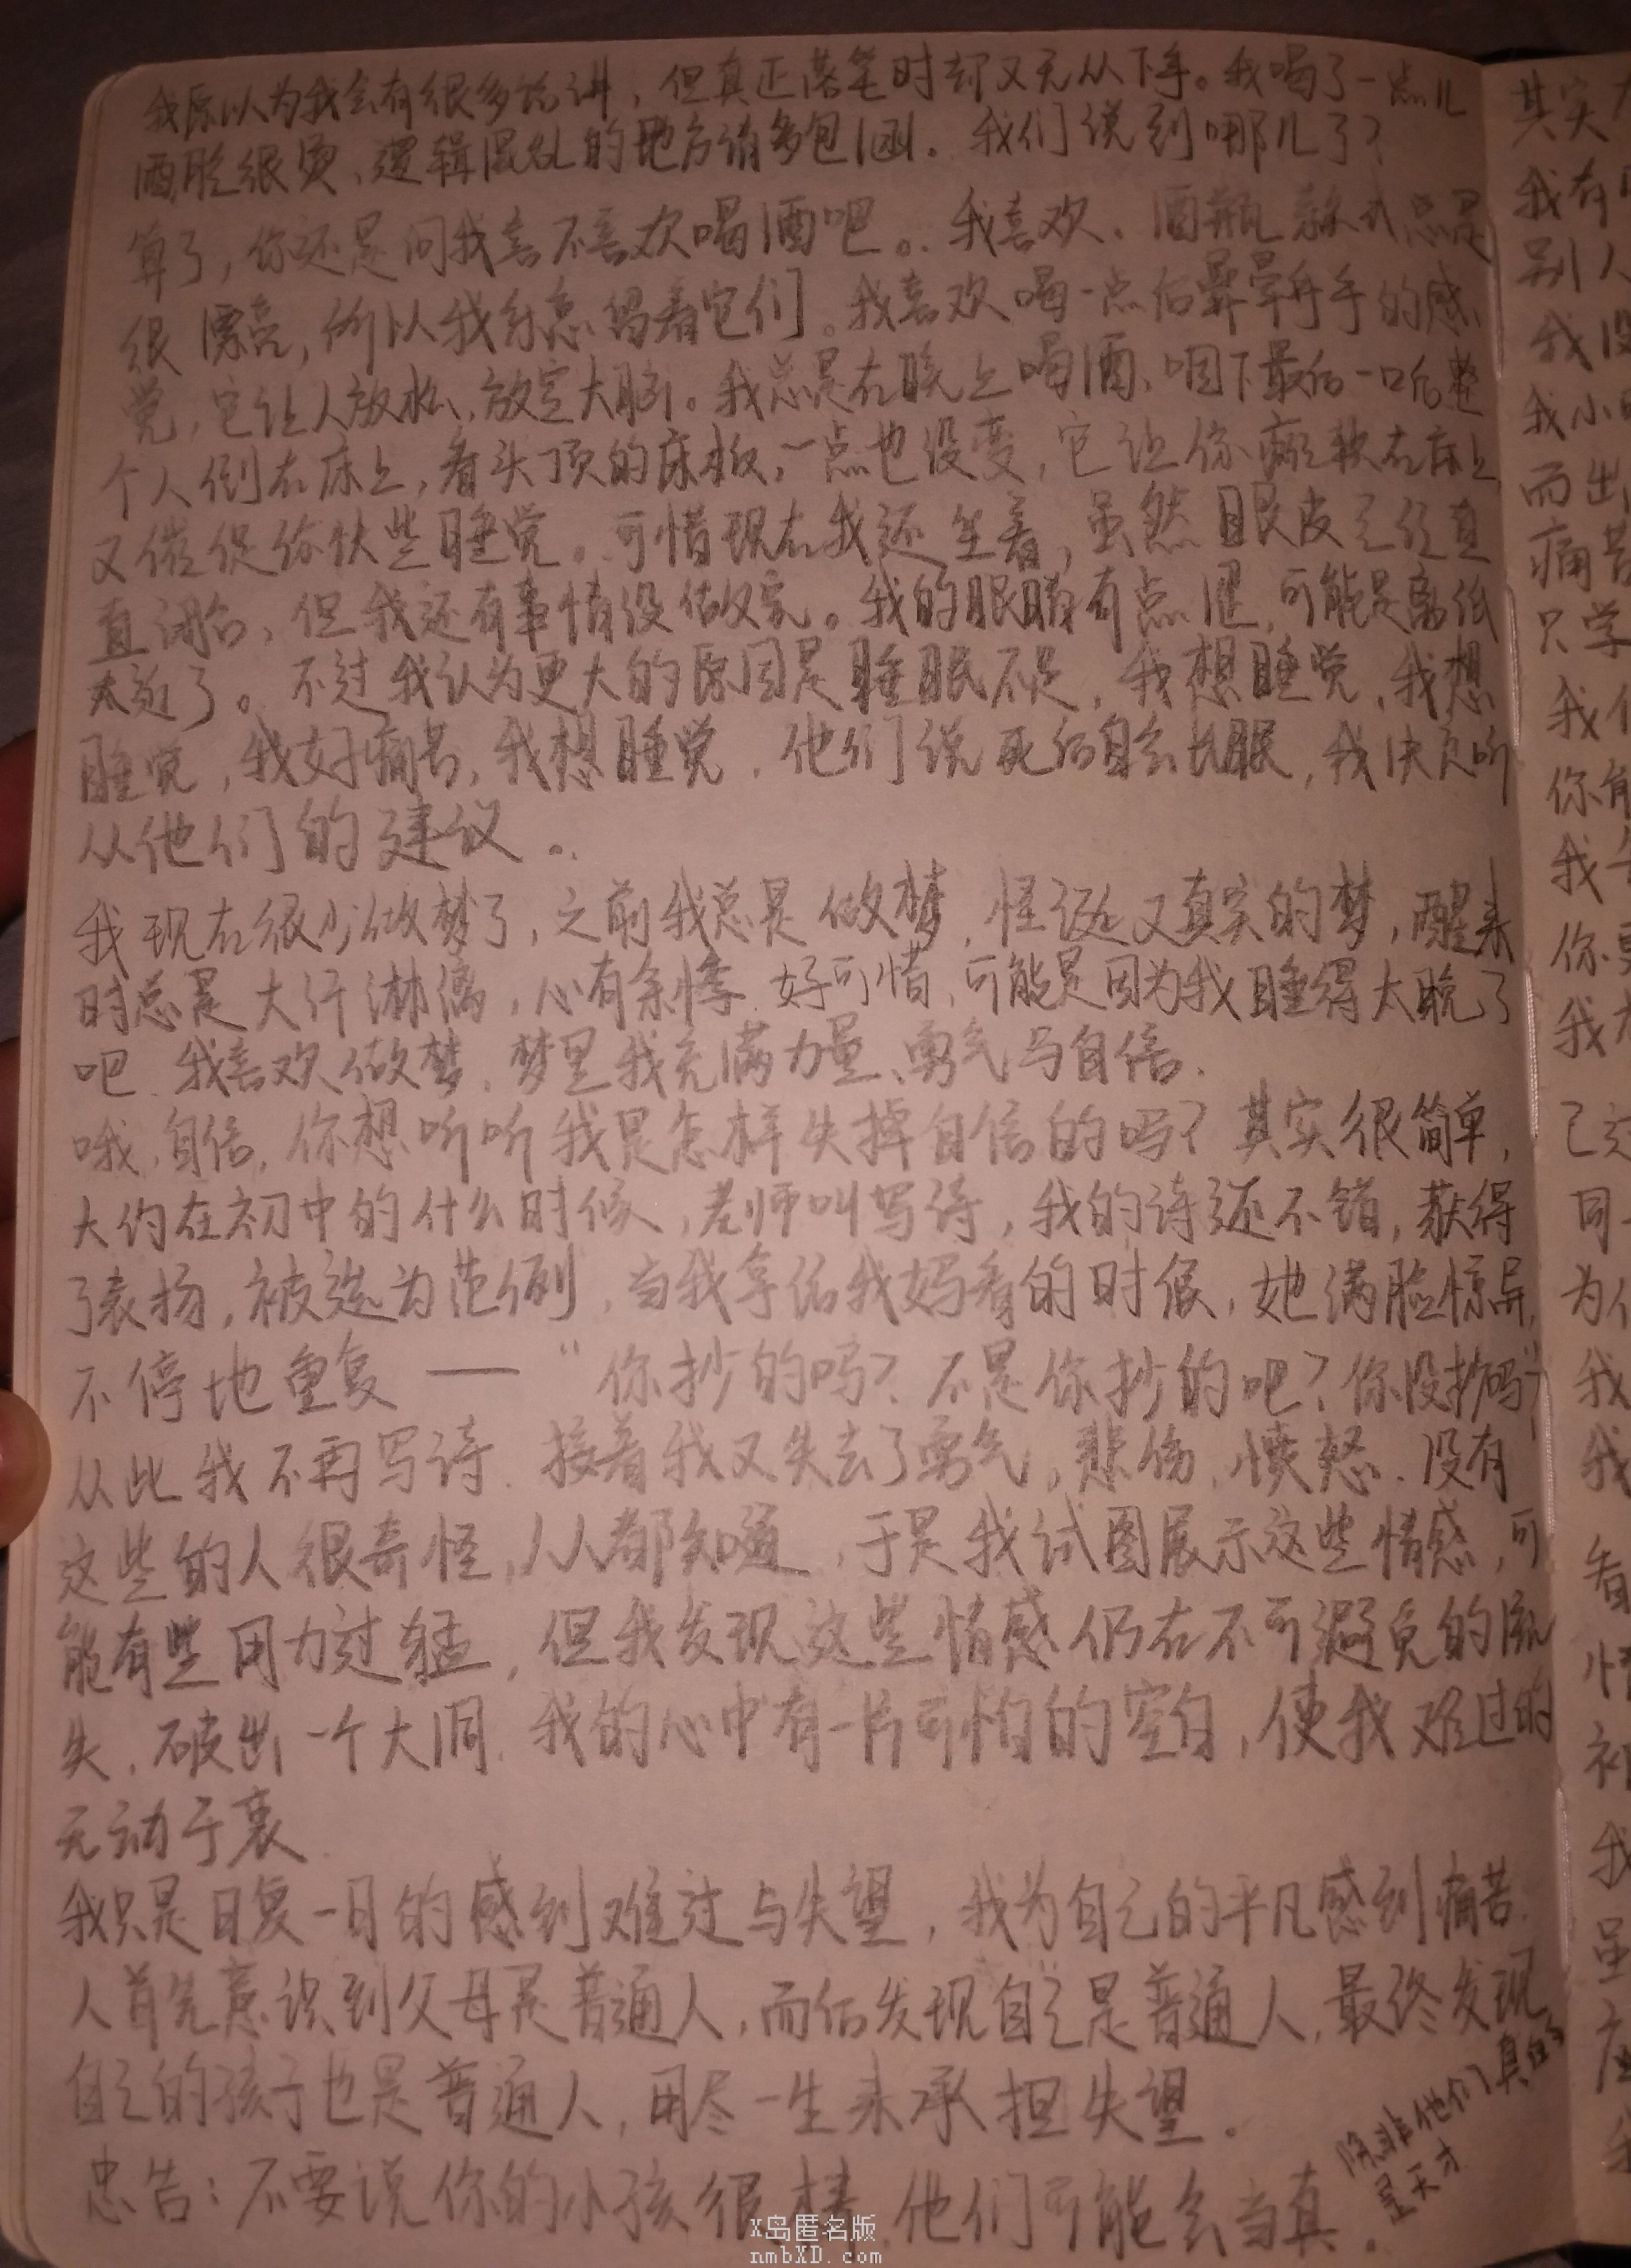 我原以为我会有很多话讲，但真正落笔时却又无从下手。我喝了一点儿
酒，脸很烫、逻辑混乱的地方请多包涵。我们说到哪儿了？
算了，你还是问我喜不喜欢喝酒吧。我喜欢、酒瓶款式总是
很漂亮，所以我总留着它们。我喜欢喝一点后晕晕的感
觉，它让人放松，放空大脑。我总是在晚上喝酒、咽下最后一口后整
个人倒在床上，看头顶的床板，一点也没变，它让你瘫软在床上
又催促你快些睡觉。可惜现在我还坐着，虽然眼皮已经直
直闭合，但我还有事情没做完。我的眼睛有点，可能是离纸
太近了。不过我认为更大的原因是睡眠不足，我想睡觉，我想
睡觉，我好痛苦，我想睡觉，他们说死后自会长眠，我决定听
从他们的建议。
我现在很少做梦了，之前我总是做梦，怪诞又真实的梦，醒来
时总是大汗淋漓，心有余悸。好可惜，可能是因为我睡得太晚了
吧 我喜欢做梦，梦里我充满力量、勇气与自信。
哦，自信，你想听听我是怎样失掉自信的吗？其实很简单，
大约在初中的什么时候，老师叫写诗，我的诗还不错，获得
了表扬，被选为范例，当我拿给我妈看的时候，她满脸惊异，
不停地重复——“你抄的吗？不是你抄的吧？你没抄吗？”
从此我不再写诗。接着我又失去了勇气，悲伤，愤怒。没有
这些的人很奇怪，人人都知道，于是我试图展示这些情感，可
能有些用力过猛，但我发现这些情感仍在不可避免的流
失，破出一个大洞，我的心中有一片可怕的空白，使我难过的
无动于衷
我只是日复一日的感到难过与失望，我为自己的平凡感到痛苦。
人首先意识到父母是普通人，而后发现自己是普通人，最终发现
自己的孩子也是普通人，用尽一生来承担失望。
忠告：不要说你的小孩很棒，他们可能会当真。
除非他们真的
是天才
其实
我有
别人
我没
我小
而出
痛苦
只学
我
你
我
你
我
己
同
为
我
我
看
初
我
虽
我
X岛匿名版
nmbXD.com